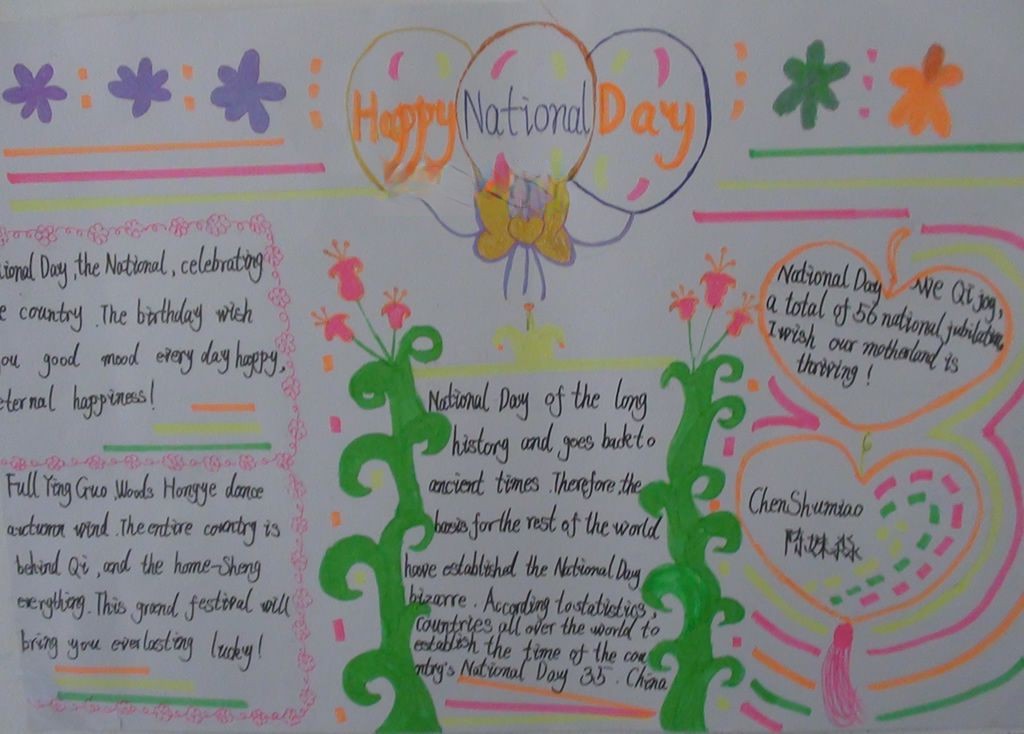 Happy National Day
ional Day, the National, celebrating
e country. The birthday wish
ou good mood every day happy,
eternal happiness!
Full Ying Guo Woods Hongye dance
autumn wind. The entire country is
behind Qi, and the home-Sheng
everything. This grand festival will
bring you everlasting lucky!
National Day of the long
history and goes back to
ancient times. Therefore, the
basis for the rest of the world
have established the National Day
bizarre. According to statistics,
countries all over the world to
establish the time of the cou
ntry's National Day 35. China
National Day We Qi joy,
a total of 56 national jubilation,
I wish our motherland is
thriving!
Chen Shumiao
陈姝淼